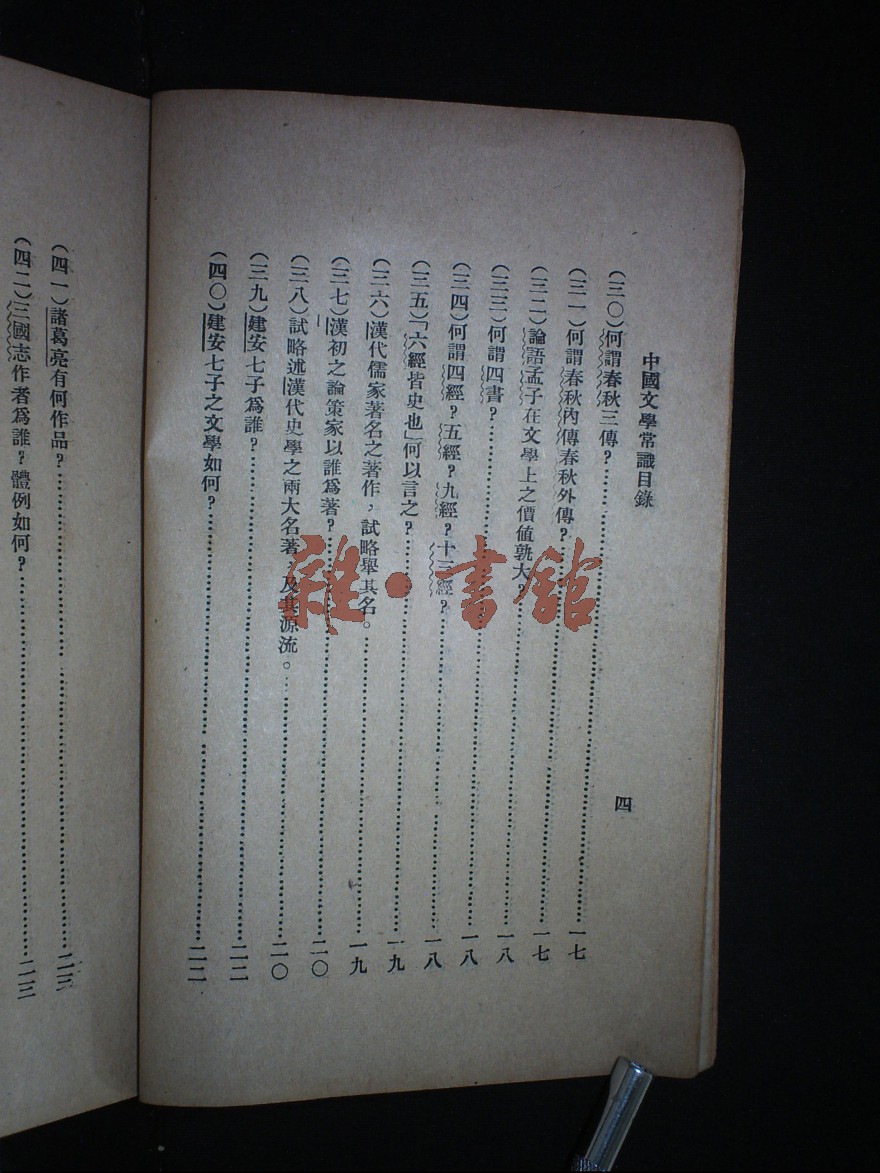 中國文學常識目錄
四
(三〇)何謂春秋三傳?……一七
(三一)何謂春秋內傳春秋外傳?……一七
(三二)論語孟子在文學上之價值孰大?……一八
(三三)何謂四書?……一八
(三四)何謂四經?五經?九經?十三經?……一八
(三五)「六經皆史也」何以言之?……一九
(三六)漢代儒家著名之著作,試略舉其名。……一九
(三七)漢初之論策家以誰爲著?……二〇
(三八)試略述漢代史學之兩大名著,及其源流。……二〇
(三九)建安七子爲誰?……二二
(四〇)建安七子之文學如何?……二二
(四一)諸葛亮有何作品?……二三
(四二)三國志作者爲誰?體例如何?……二三
雜·書館